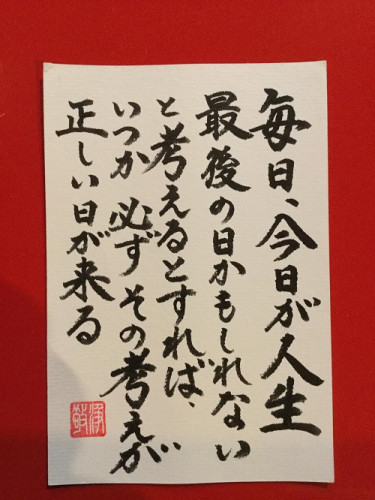 毎日、今日が人生
最後の日かもしれない
と考えるとすれば、
いつか必ずその考えが
正しい日が来る